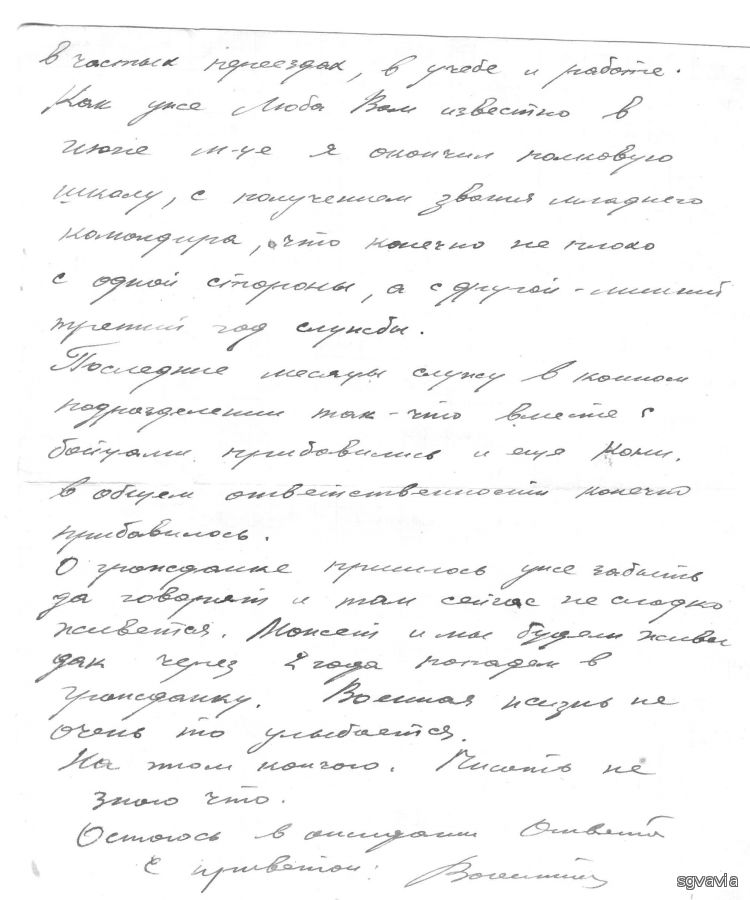 в частых приездах, в учебе и работе.
Как уже Люба Вам известно в
июне м-це я окончил полковую
школу, с получением звания младшего
командира, что конечно не плохо
с одной стороны, а с другой - лишний
третий год службы.
Последние месяцы служу в конном
подразделении так-что вместе с
бойцами прибавились и еще Кони.
в общем ответственности конечно
прибавилось.
О гражданке пришлось уже забыть
да говорят и там сейчас не сладко
живется. Может и мы будем живы
дак через 2 года попадем в
гражданку. Военная жизнь не
очень то улыбается.
На этом кончаю. Писать не
знаю что.
Остаюсь в ожидании Ответа
С приветом: Валентин
sgvavia